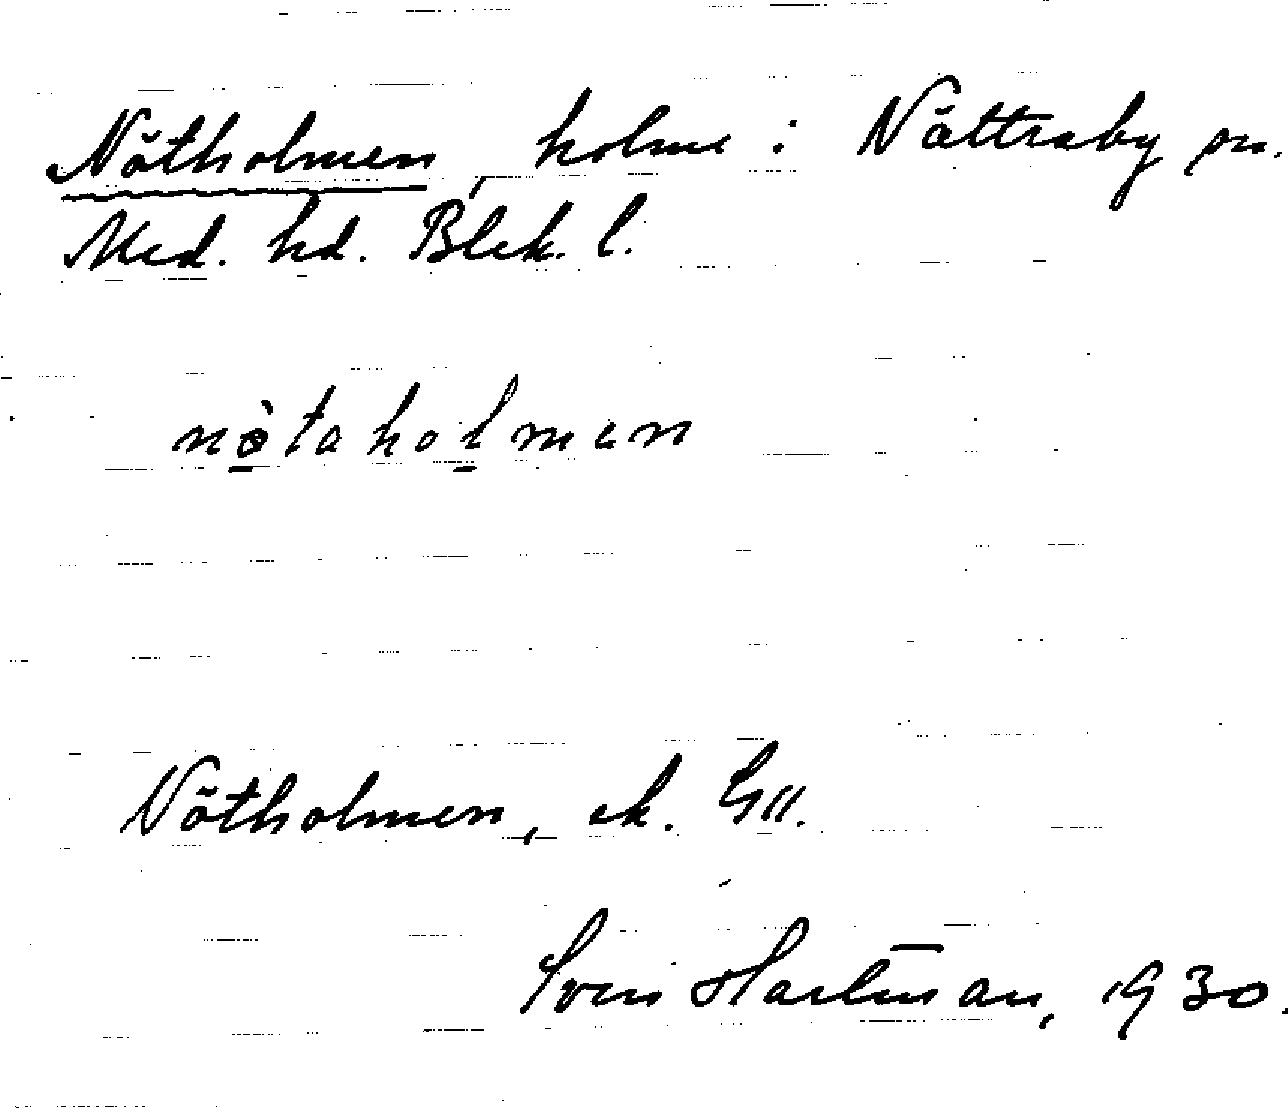 Nötholmen, holme i Nättraby sn.
Med. hd. Blek. l.
nötaholmen
Nötholmen, ek. 
Sven Hartman, 1930.